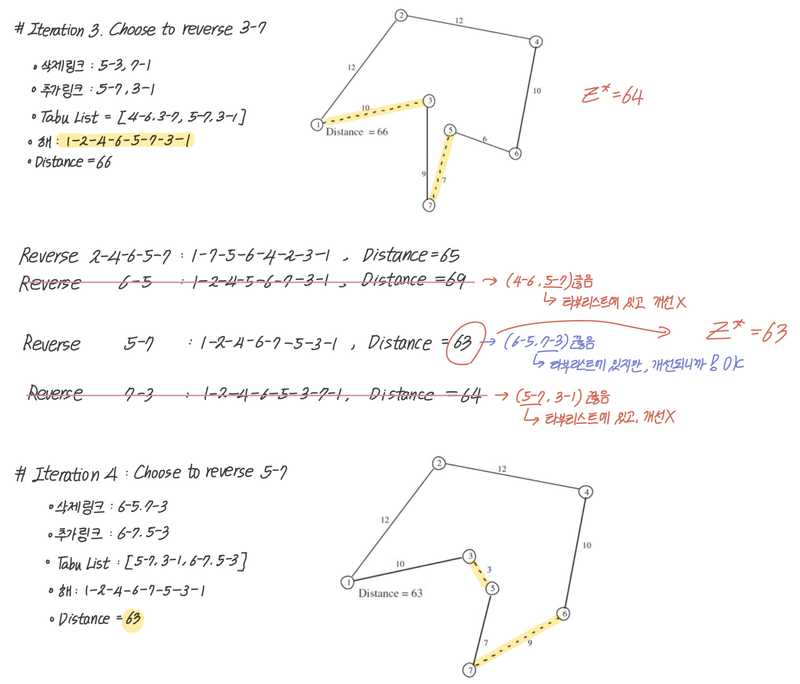 # Iteration 3. Choose to reverse 3-7
• 삭제링크 : 5-3, 7-1
• 추가링크 : 5-7, 3-1
• Tabu List = [4-6, 3-7, 5-7, 3-1]
• 해 : 1-2-4-6-5-7-3-1
• Distance = 66
2
12
4
12
10
10
3
1
Distance = 66
5
6
6
9
7
7
Z* = 64
Reverse 2-4-6-5-7 : 1-7-5-6-4-2-3-1 , Distance = 65
Reverse 6-5 : 1-2-4-5-6-7-3-1 , Distance = 69 → (4-6, 5-7) 끊음
↳ 타부리스트에 있고 개선 X
Reverse 5-7 : 1-2-4-6-7-5-3-1 , Distance = 63 → (6-5, 7-3) 끊음
Z* = 63
↳ 타부리스트에 있지만, 개선되니까 용 OK
Reverse 7-3 : 1-2-4-6-5-3-7-1, Distance = 64 → (5-7, 3-1) 끊음
↳ 타부리스트에 있고, 개선 X
# Iteration 4 : Choose to reverse 5-7
• 삭제링크 : 6-5. 7-3
• 추가링크 : 6-7. 5-3
• Tabu List : [5-7, 3-1, 6-7, 5-3]
• 해 : 1-2-4-6-7-5-3-1
• Distance = 63
2
12
4
12
10
10
3
3
1
5
Distance = 63
6
7
9
7